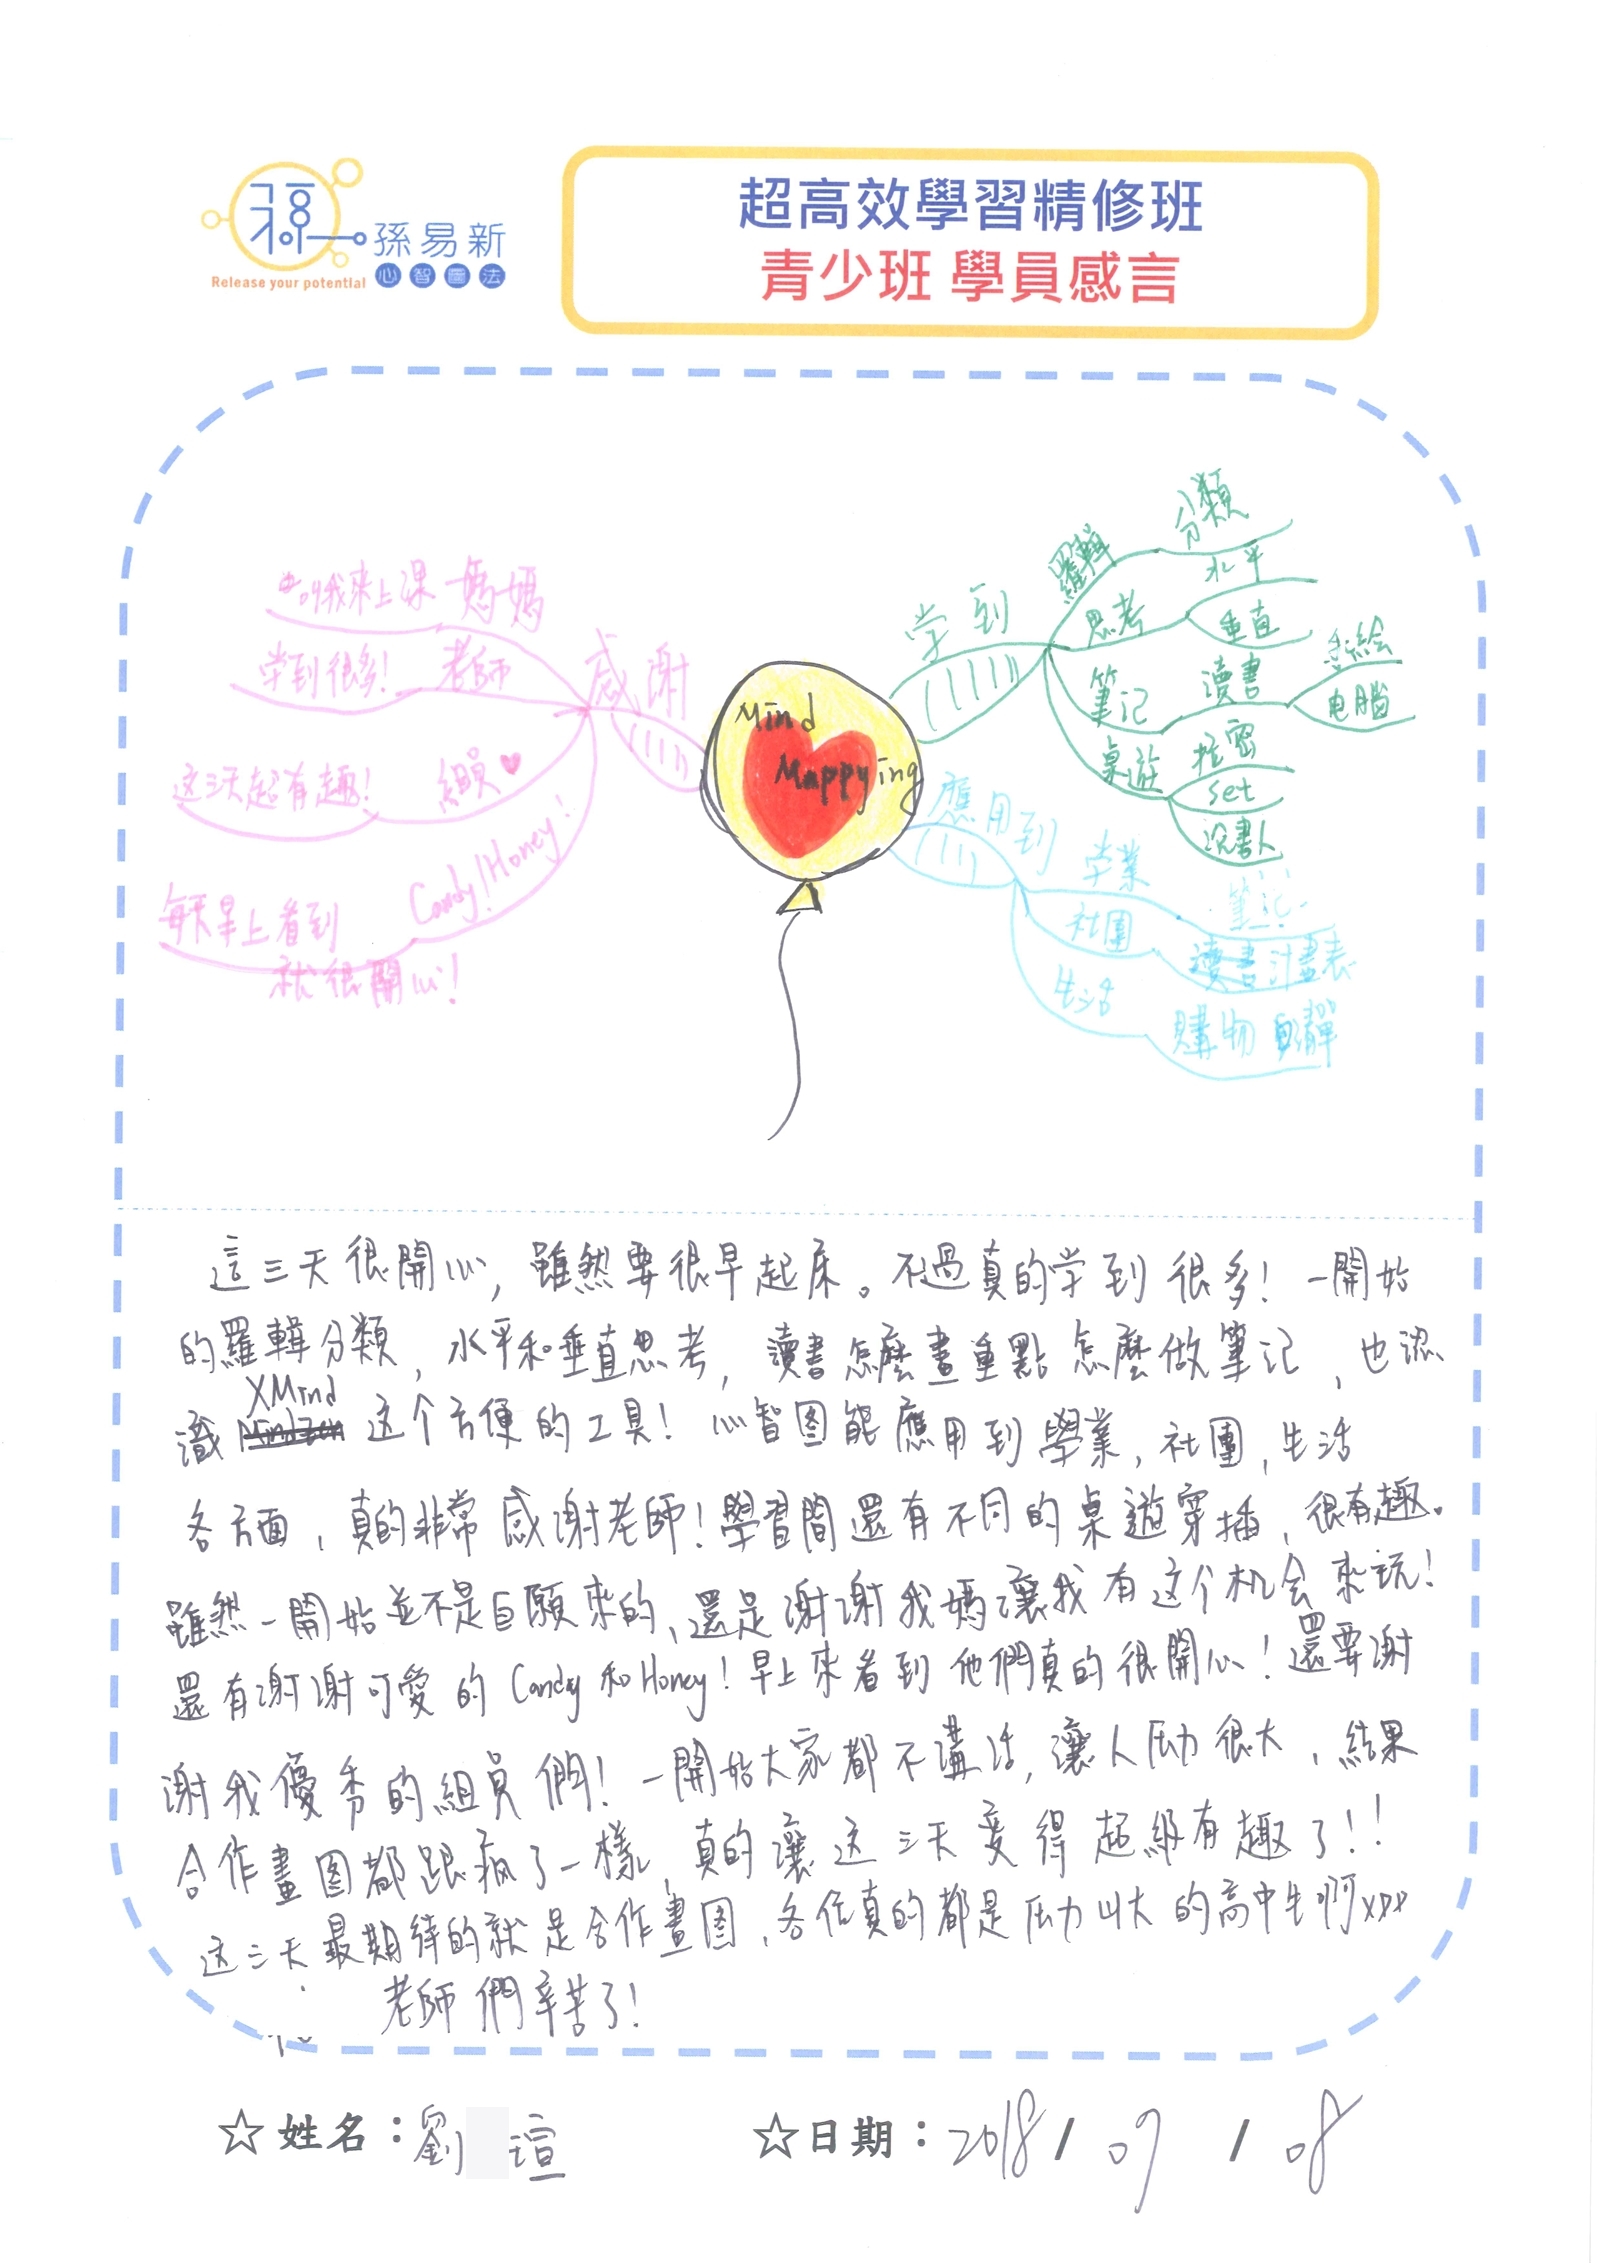 孫易新
心智圖法
Release your potential
超高效學習精修班
青少班 學員感言
叫我來上课 媽媽
学到很多! 老師
这三天超有趣! 組員
每天早上看到
就很開心!
Candy/Honey!
感謝
Mind
Mappying
学到
羅輯
分類
思考
水平
垂直
筆记
讀書
手絵
电腦
桌遊
拴密
set
说書人
應用到
学業
筆记
社團
讀書計畫表
生活
購物 清單
這三天很開心,雖然要很早起床。不過真的学到很多!一開始
的羅輯分類,水平和垂直思考,讀書怎麼畫重點怎麼做筆记,也認
識 XMind 这个方便的工具!心智图能應用到學業,社團,生活
各方面,真的非常感谢老師!學習間還有不同的桌遊穿插,很有趣。
雖然一開始並不是自願來的,還是谢谢我媽讓我有这个机会來玩!
還有谢谢可愛的Candy和Honey!早上來看到他們真的很開心!還要谢
谢我優秀的組員們!一開始大家都不講话,讓人压力很大,結果
合作畫图都跟瘋了一樣,真的讓这三天变得超級有趣了!!
这三天最期待的就是合作畫图,各位真的都是压力山大的高中生啊XDD
老師們辛苦了!
☆姓名:劉 瑄
☆日期:2018/09/08